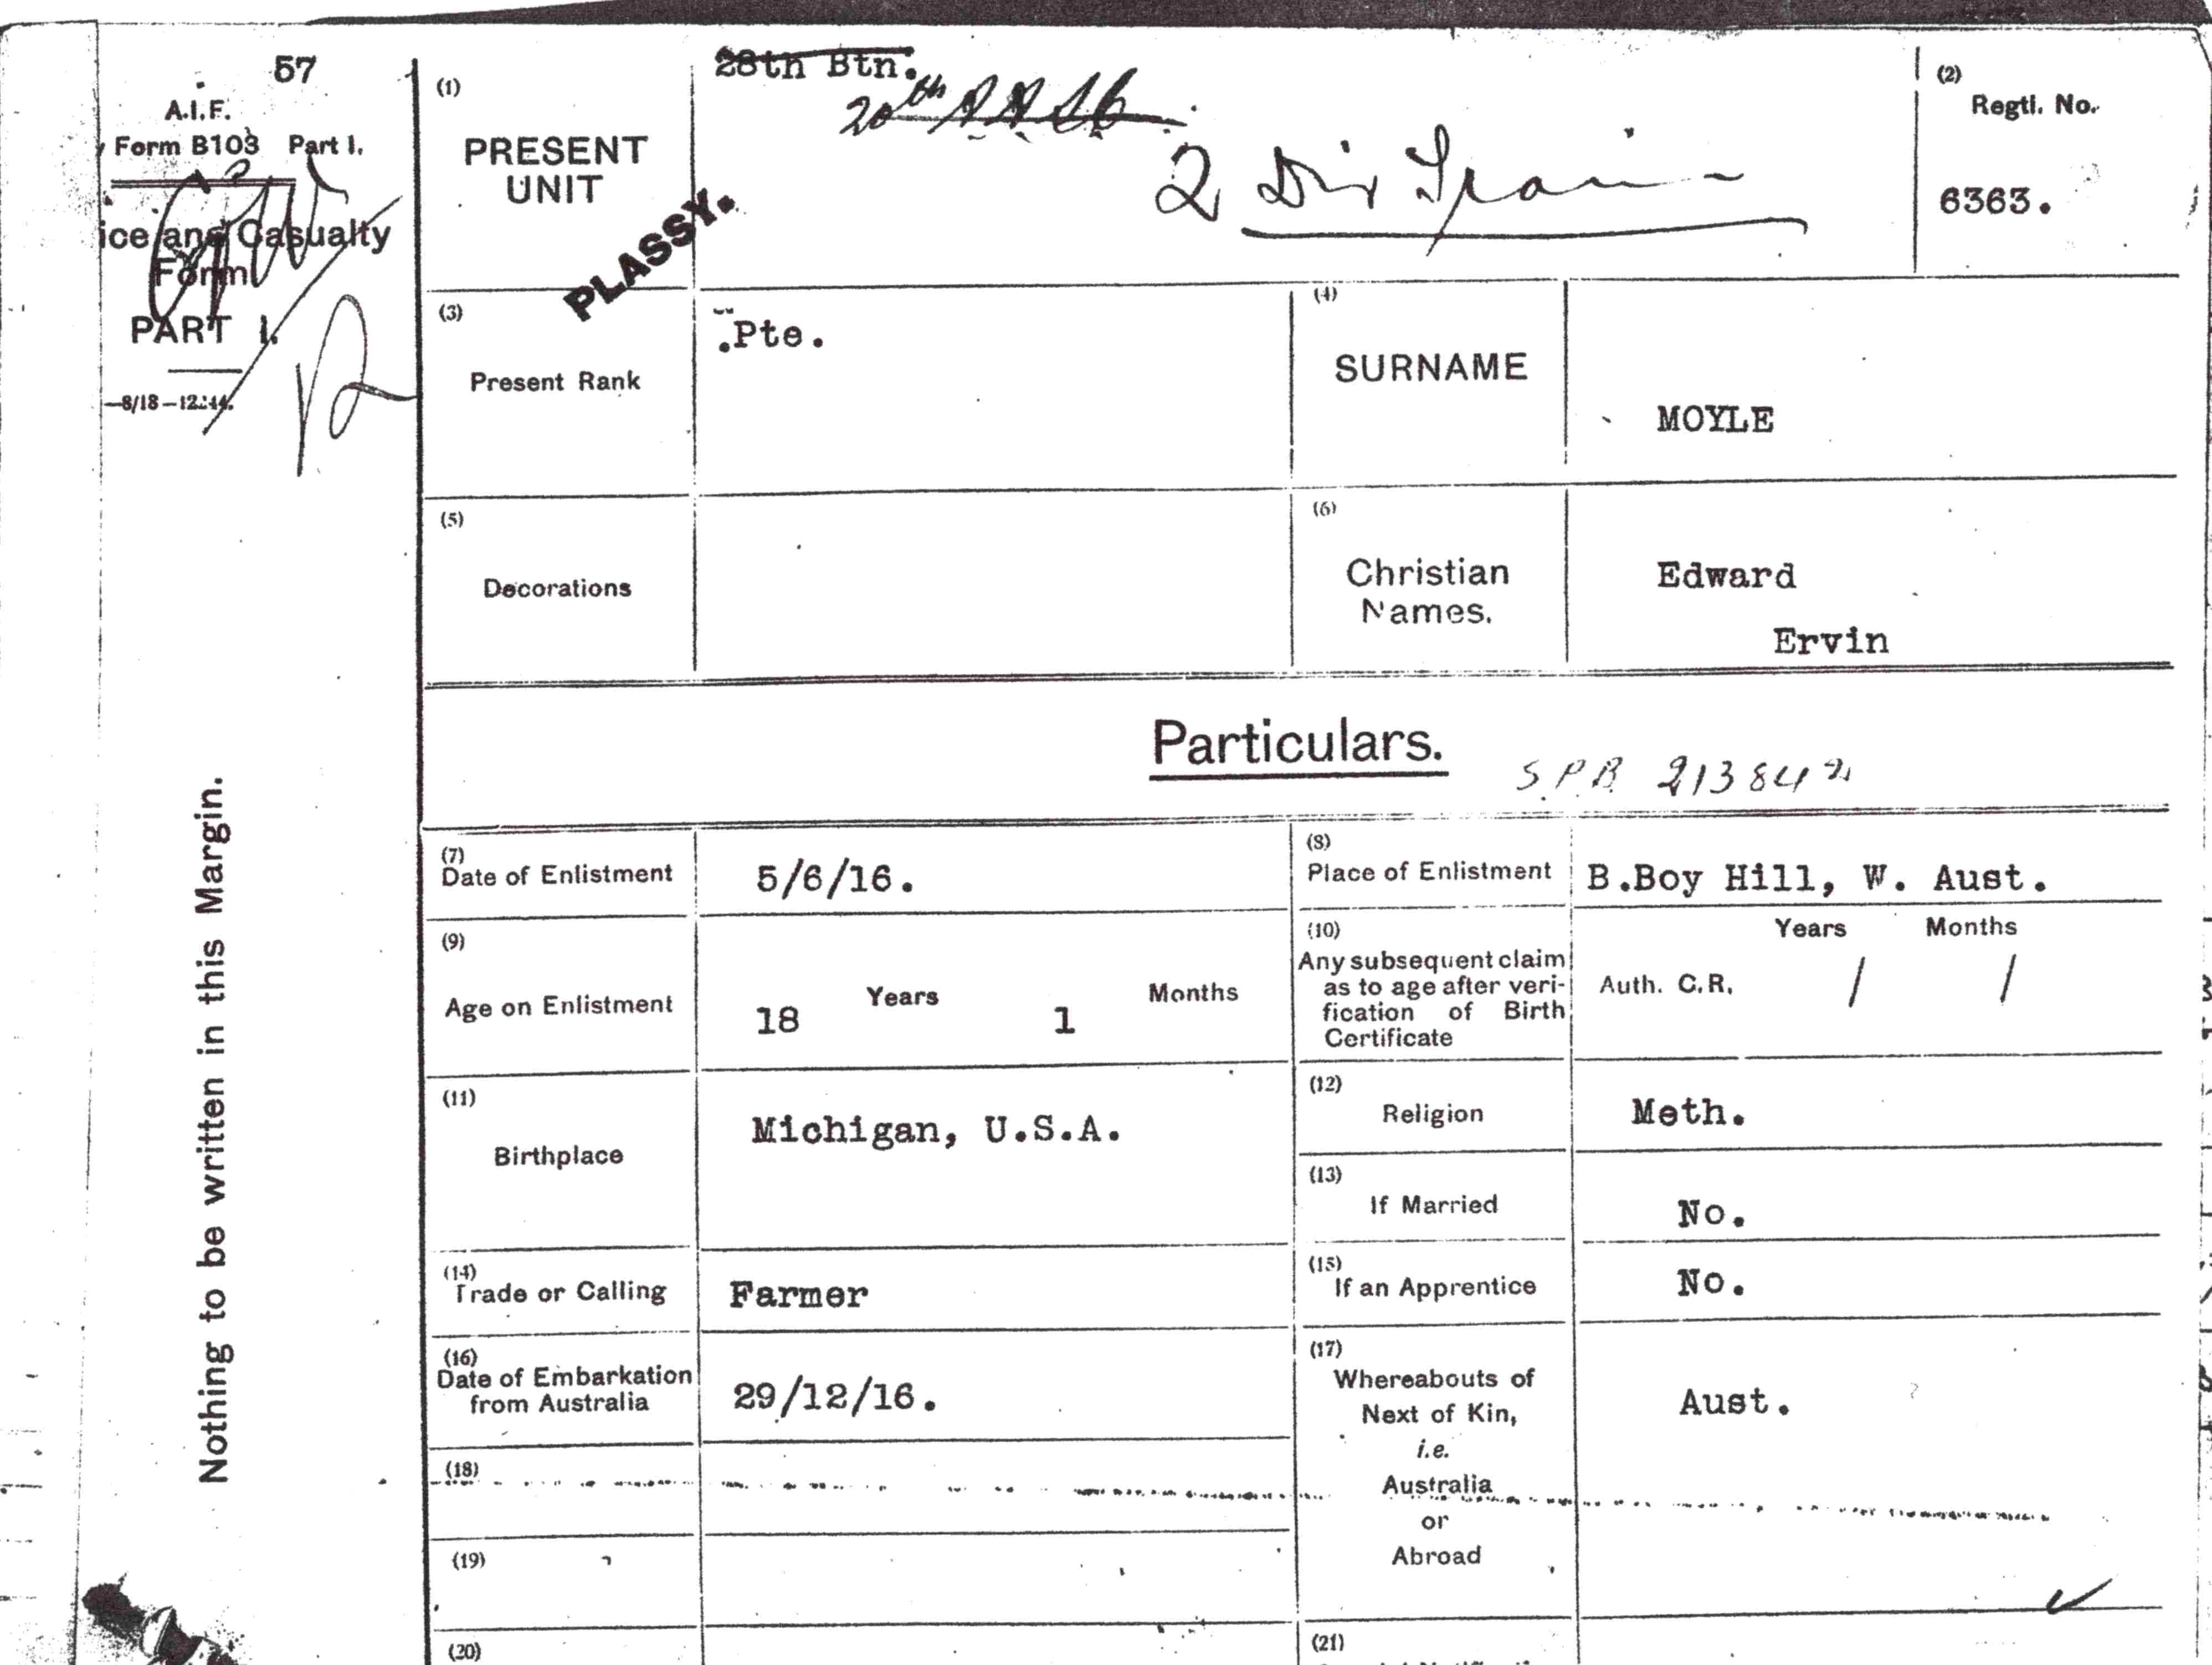 57
A.I.F.
Form B103 Part I.
ice and Casualty
Form
PART I.
—8/18—12
Nothing to be written in this Margin.
(1)
PRESENT
UNIT
28th Btn.
20th
2 Div Train
PLASSY.
(2)
Regtl. No.
6363.
(3)
Present Rank
Pte.
(4)
SURNAME
MOYLE
(5)
Decorations
(6)
Christian
Names.
Edward
Ervin
Particulars.
S.P.B. 213842
(7)
Date of Enlistment
5/6/16.
(8)
Place of Enlistment
B.Boy Hill, W. Aust.
(9)
Age on Enlistment
18 Years 1 Months
(10)
Any subsequent claim
as to age after veri-
fication of Birth
Certificate
Auth. C.R.
Years Months
/ /
(11)
Birthplace
Michigan, U.S.A.
(12)
Religion
Meth.
(13)
If Married
No.
(14)
Trade or Calling
Farmer
(15)
If an Apprentice
No.
(16)
Date of Embarkation
from Australia
29/12/16.
(17)
Whereabouts of
Next of Kin,
i.e.
Australia
or
Abroad
Aust.
(18)
(19)
(20)
(21)